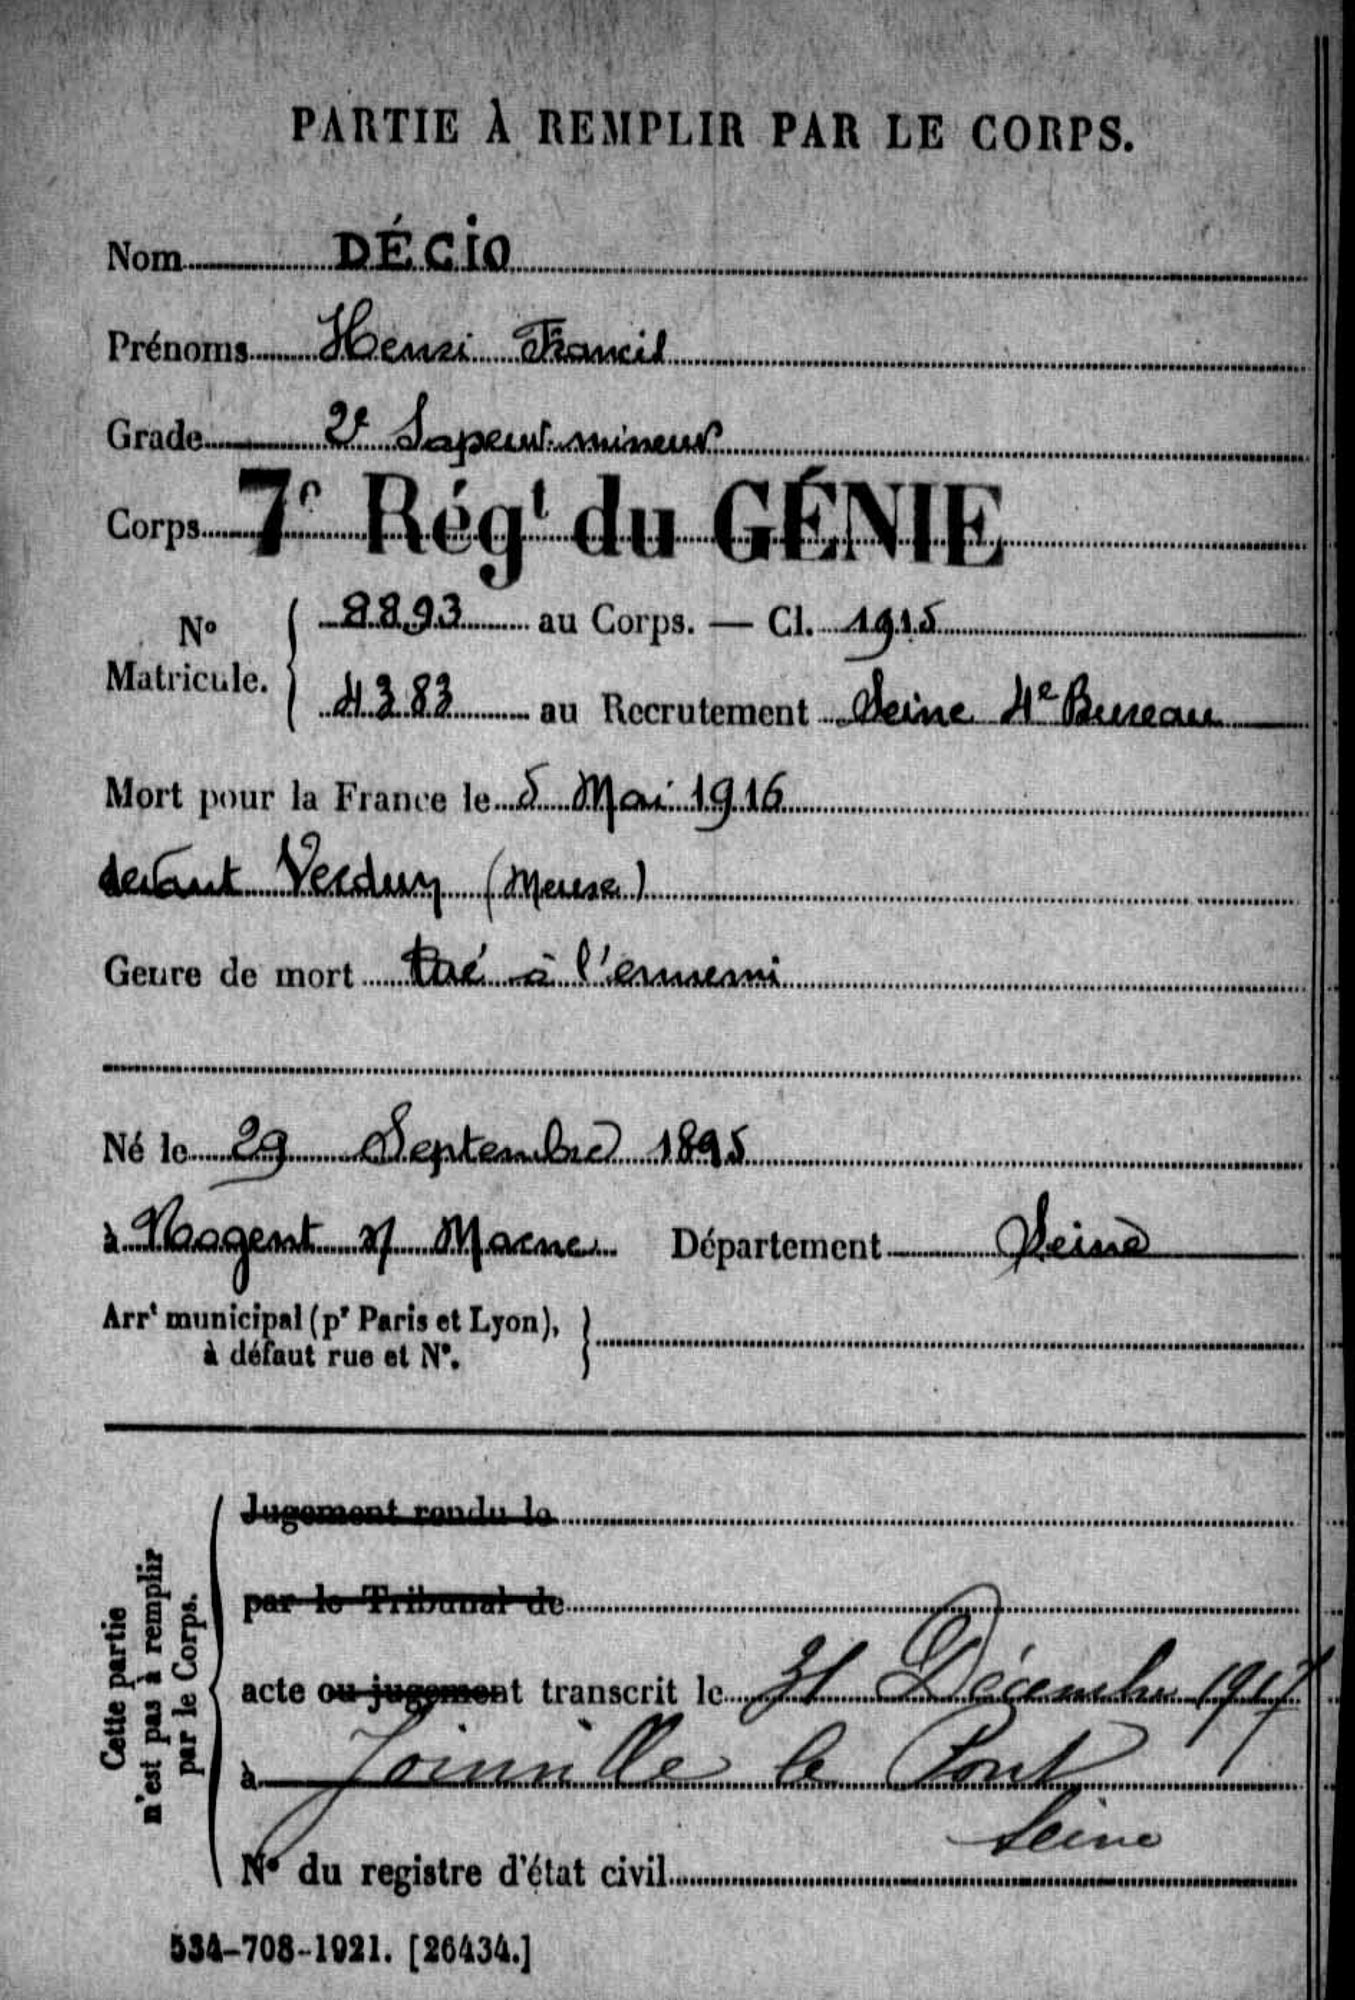 PARTIE À REMPLIR PAR LE CORPS.
Nom DÉCIO
Prénoms Henri Francis
Grade 2e Sapeur mineur
Corps 7e Régt du GÉNIE
No Matricule. { 8893 au Corps. — Cl. 1915
4383 au Recrutement Seine 4e Bureau
Mort pour la France le 5 Mai 1916
devant Verdun (Meuse)
Genre de mort tué à l'ennemi
Né le 29 Septembre 1895
à Nogent s/ Marne Département Seine
Arrt municipal (pr Paris et Lyon), }
à défaut rue et No.
Cette partie
n'est pas à remplir
par le Corps.
Jugement rendu le
par le Tribunal de
acte ou jugement transcrit le 31 Décembre 1917
à Joinville le Pont
Seine
No du registre d'état civil
534-708-1921. [26434.]